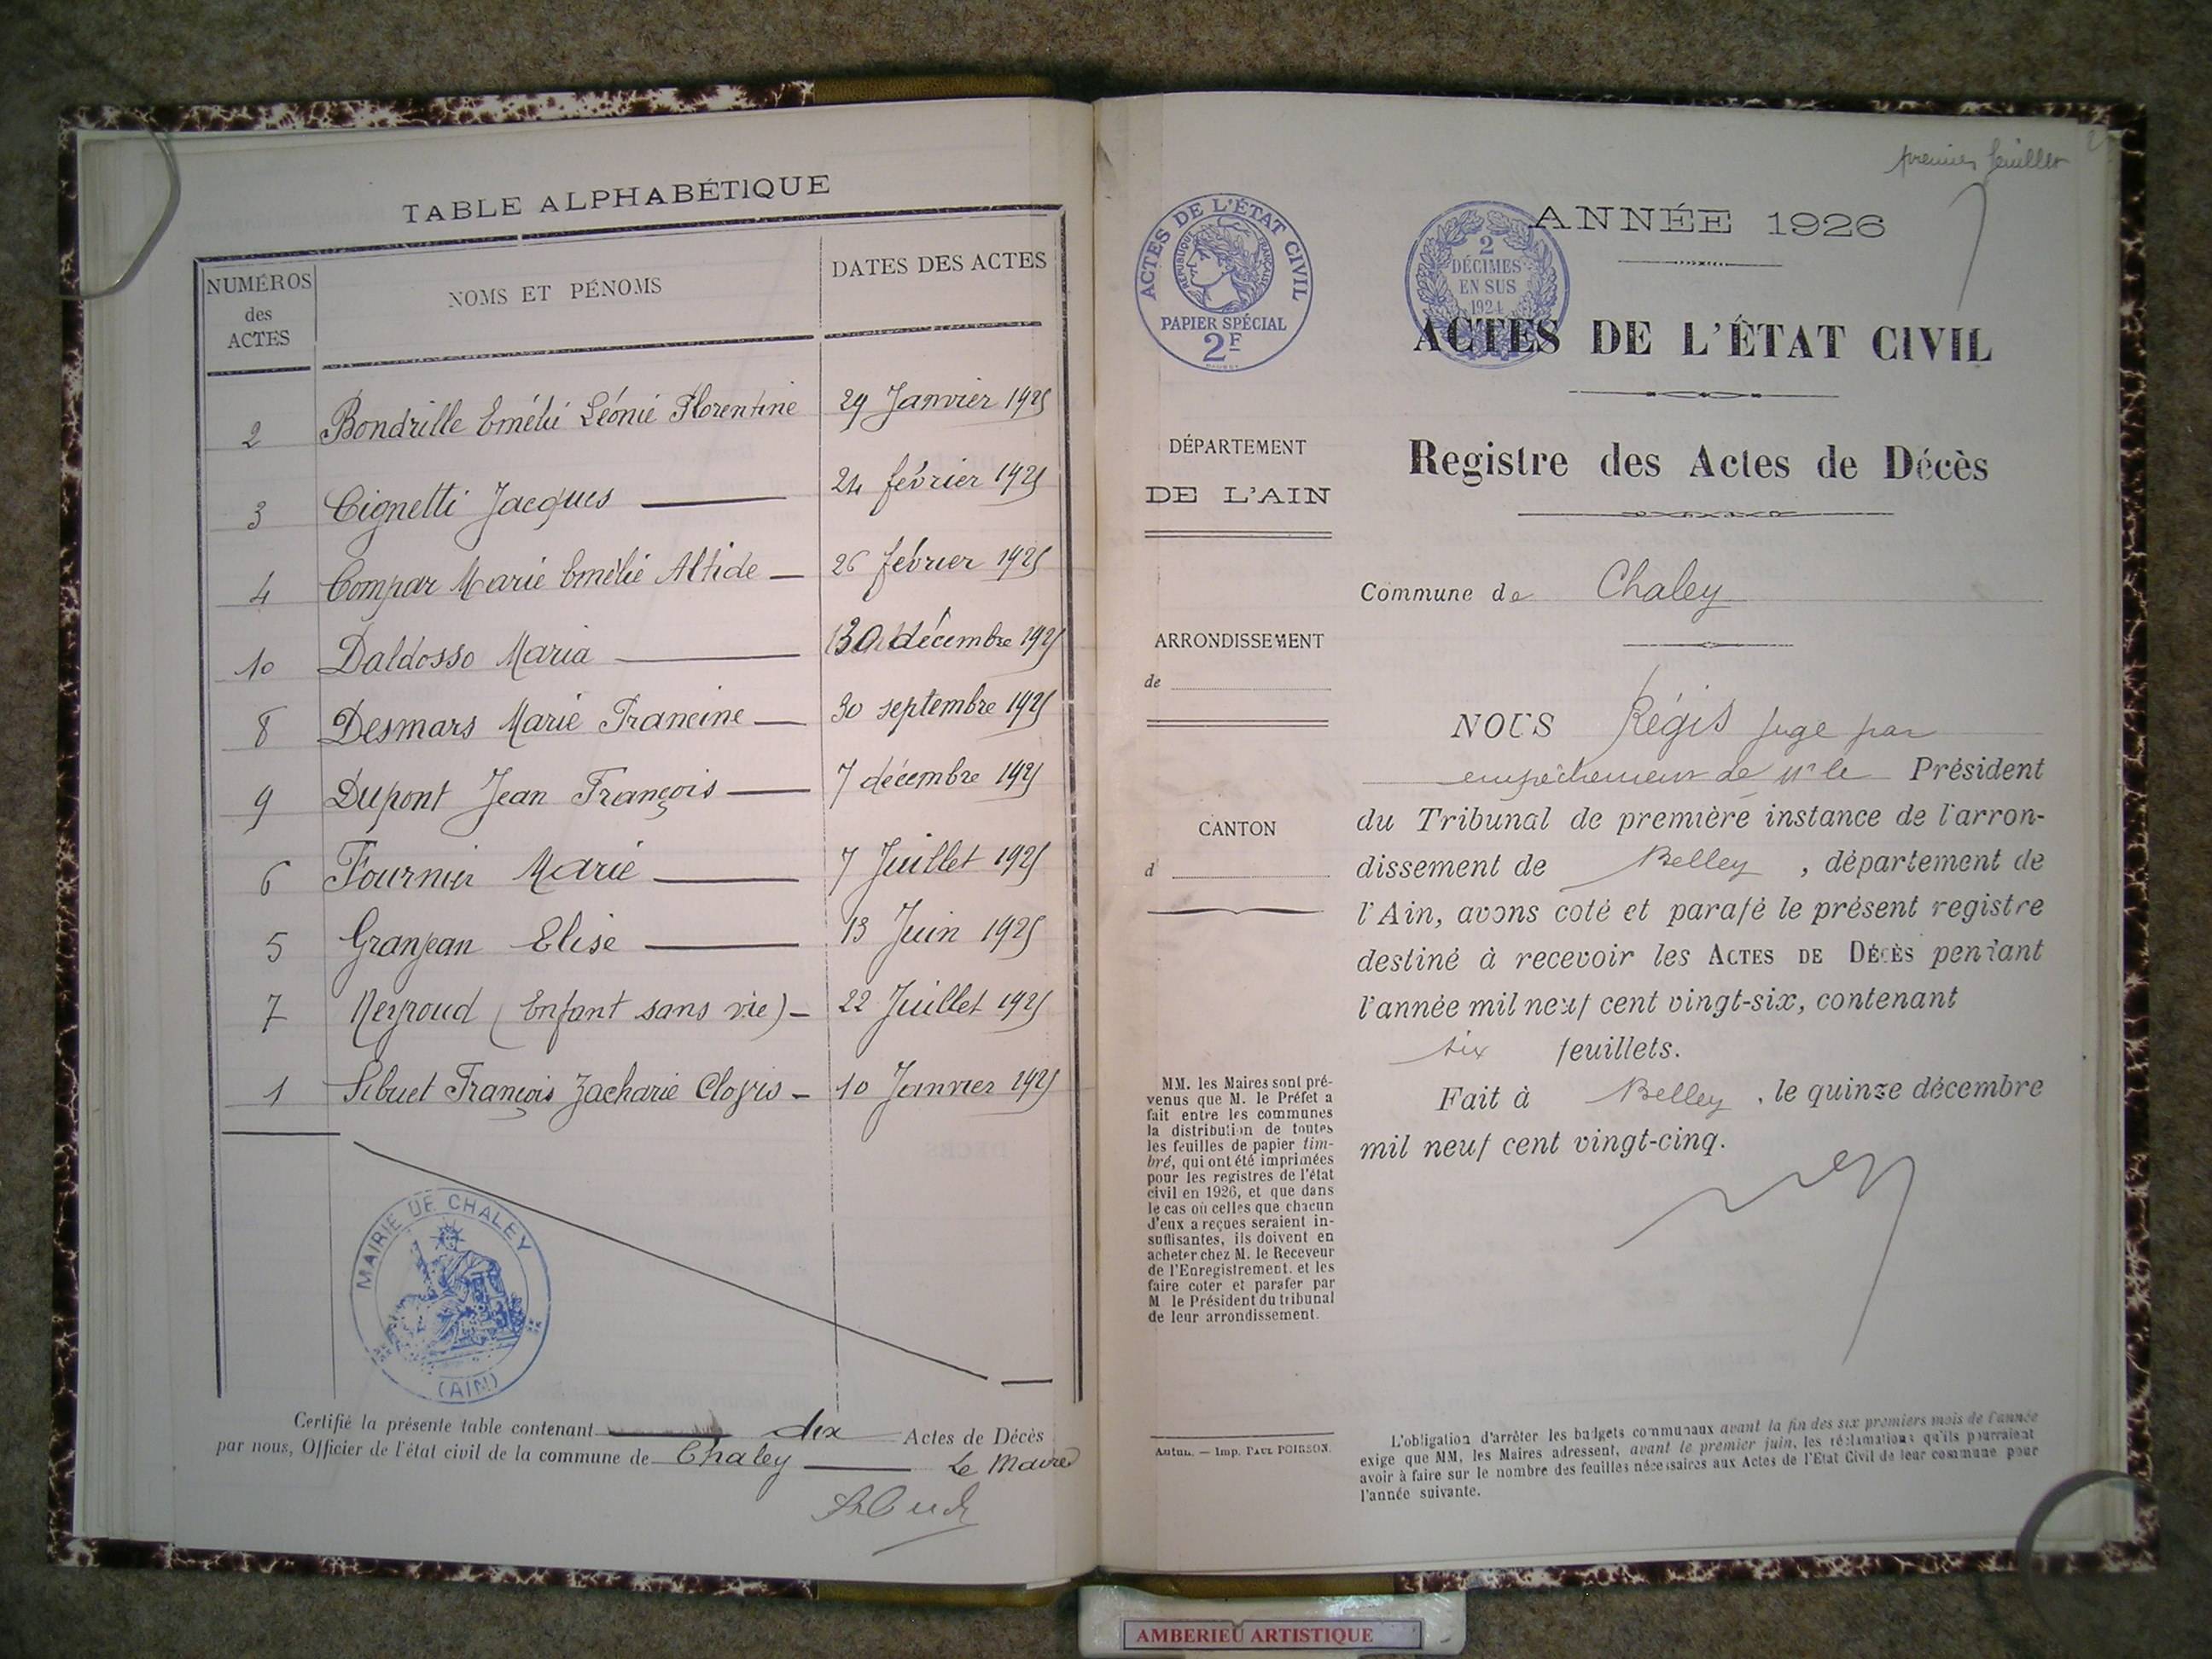 TABLE ALPHABÉTIQUE
NUMÉROS
des
ACTES
NOMS ET PÉNOMS
DATES DES ACTES
2 Bondrille Emélie Léonie Florentine 29 Janvier 1925
3 Cignetti Jacques 24 février 1925
4 Compar Marie Emélie Altide 26 février 1925
10 Daldosso Maria 30 décembre 1925
8 Desmars Marie Francine 30 septembre 1925
9 Dupont Jean François 7 décembre 1925
6 Fournier Marie 7 Juillet 1925
5 Granjean Elise 13 Juin 1925
7 Neyroud (Enfant sans vie) 22 Juillet 1925
1 Sibuet François Zacharie Clovis 10 Janvier 1925
MAIRIE DE CHALEY
(AIN)
Certifié la présente table contenant dix Actes de Décès
par nous, Officier de l'état civil de la commune de Chaley Le Maire
premier feuillet
ACTES DE L'ÉTAT CIVIL
RÉPUBLIQUE FRANÇAISE
PAPIER SPÉCIAL
2F
2
DÉCIMES
EN SUS
1924
ANNÉE 1926
ACTES DE L'ÉTAT CIVIL
Registre des Actes de Décès
DÉPARTEMENT
DE L'AIN
ARRONDISSEMENT
de
CANTON
d
MM. les Maires sont pré-
venus que M. le Préfet a
fait entre les communes
la distribution de toutes
les feuilles de papier tim-
bré, qui ont été imprimées
pour les registres de l'état
civil en 1926, et que dans
le cas où celles que chacun
d'eux a reçues seraient in-
suffisantes, ils doivent en
acheter chez M. le Receveur
de l'Enregistrement. et les
faire coter et parafer par
M le Président du tribunal
de leur arrondissement.
Autun. — Imp. PAUL POIRSON.
Commune de Chaley
NOUS Régis juge par
empêchement de Mr le Président
du Tribunal de première instance de l'arron-
dissement de Belley, département de
l'Ain, avons coté et parafé le présent registre
destiné à recevoir les ACTES DE DÉCÈS pendant
l'année mil neuf cent vingt-six, contenant
six feuillets.
Fait à Belley, le quinze décembre
mil neuf cent vingt-cinq.
L'obligation d'arrêter les budgets communaux avant la fin des six premiers mois de l'année
exige que MM. les Maires adressent, avant le premier juin, les réclamations qu'ils pourraient
avoir à faire sur le nombre des feuilles nécessaires aux Actes de l'Etat Civil de leur commune pour
l'année suivante.
AMBERIEU ARTISTIQUE